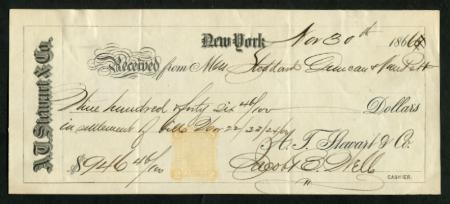 A.T. Stewart & Co.
New York Nov 30th 186
Received from Mess
Nine hundred & forty six 46/100 Dollars
in settlement of bills Nov 22/23/24/
A. T. Stewart & Co.
$946 46/100 Jacob E.
CASHIER.